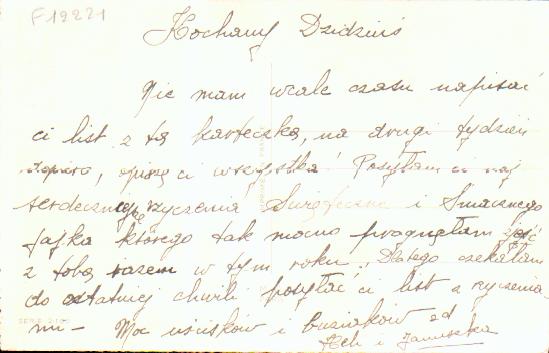 F 19221
Kochany Dzidziuś
Nie mam wcale czasu napisać
ci list z tą karteczką, na drugi tydzień
dopiero, opiszę ci wszystko! Posyłam ci naj
serdeczniejsze życzenia Świąteczne i Smacznego
jajka którego tak mocno pragnęłam zjeść
z tobą razem w tym roku. Dlatego czekałam
do ostatniej chwili posyłać ci list z życzenia
mi — Moc uścisków i buziaków od
i Januszka